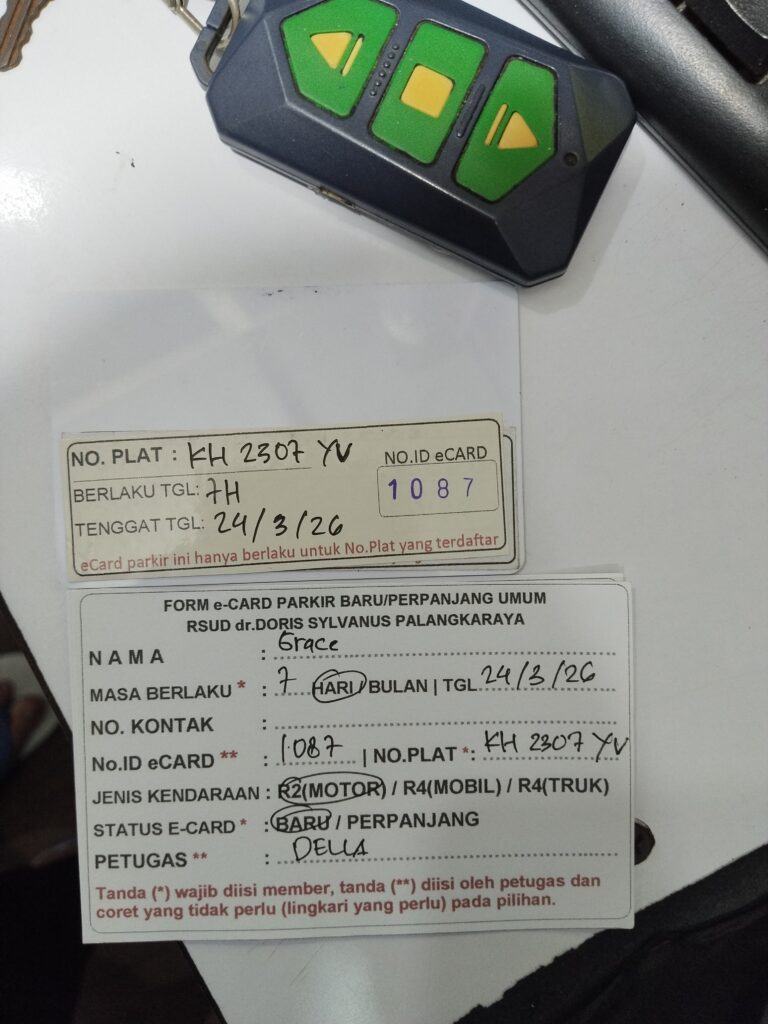 NO. PLAT : KH 2307 YV
NO.ID eCARD
1087
BERLAKU TGL: 7H
TENGGAT TGL: 24/3/26
eCard parkir ini hanya berlaku untuk No.Plat yang terdaftar
FORM e-CARD PARKIR BARU/PERPANJANG UMUM
RSUD dr.DORIS SYLVANUS PALANGKARAYA
NAMA : Grace
MASA BERLAKU * : 7 HARI/BULAN | TGL 24/3/26
NO. KONTAK :
No.ID eCARD ** : 1087 | NO.PLAT *: KH 2307 YV
JENIS KENDARAAN : R2(MOTOR) / R4(MOBIL) / R4(TRUK)
STATUS E-CARD * : BARU / PERPANJANG
PETUGAS ** : DELLA
Tanda (*) wajib diisi member, tanda (**) diisi oleh petugas dan
coret yang tidak perlu (lingkari yang perlu) pada pilihan.